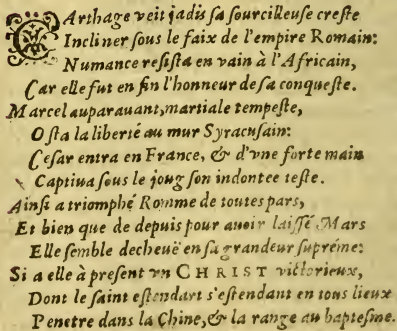 CArthage veit jadis sa sourcilleuse creste
Incliner sous le faix de l'empire Romain:
Numance resista en vain à l'Africain,
Car elle fut en fin l'honneur de sa conqueste.
Marcel auparauant, martiale tempeste,
Osta la liberté au mur Syracusain:
Cesar entra en France, & d'vne forte main
Captiua sous le joug son indontee teste.
Ainsi a triomphé Romme de toutes pars,
Et bien que de depuis pour auoir laissé Mars
Elle semble decheuë en sa grandeur supréme:
Si a elle à present vn CHRIST victorieux,
Dont le saint estendart s'estendant en tous lieux
Penetre dans la Chine, & la range au baptesme.